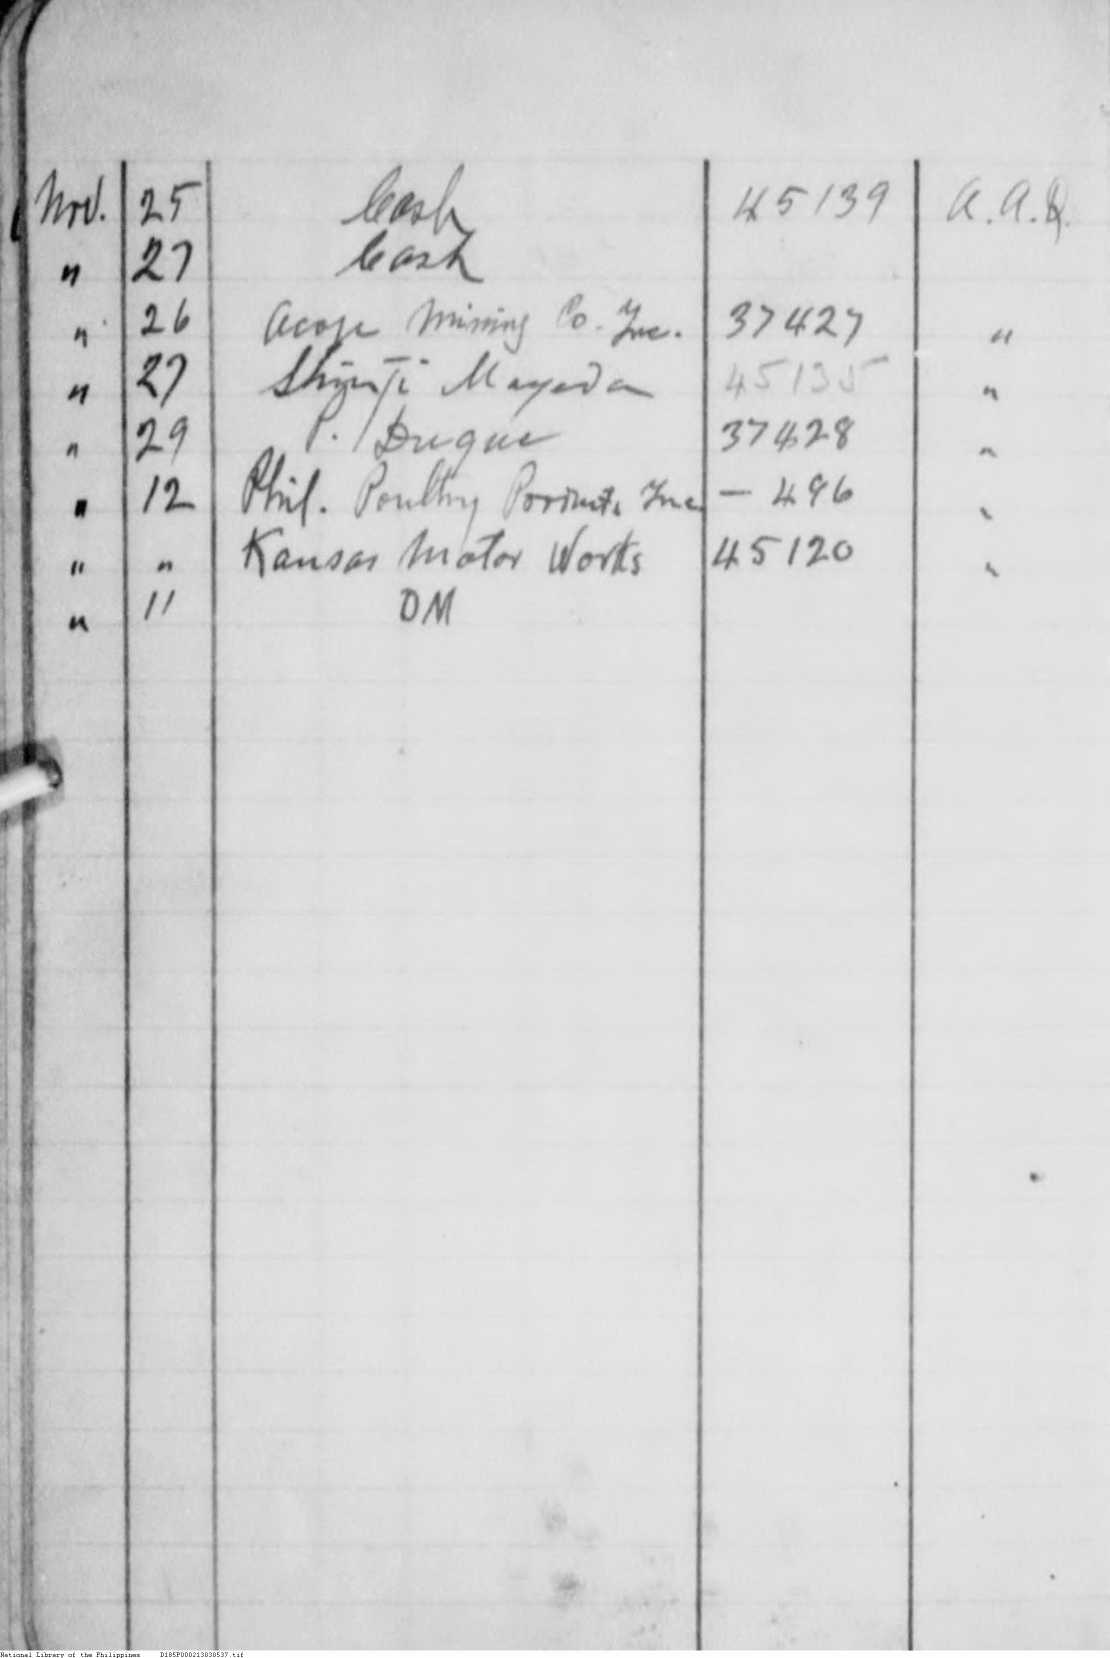 Nov. 25 Cash 45139 A.A.R.
" 27 Cash
" 26 Acoje Mining Co. Inc. 37427 "
" 27 Shinji Mayeda 45135 "
" 29 P. Duque 37428 "
" 12 Phil. Poultry Inc. — 496 "
" " Kansas Motor Works 45120 "
" 11 DM
National Library of the Philippines D185P000213838537.tif